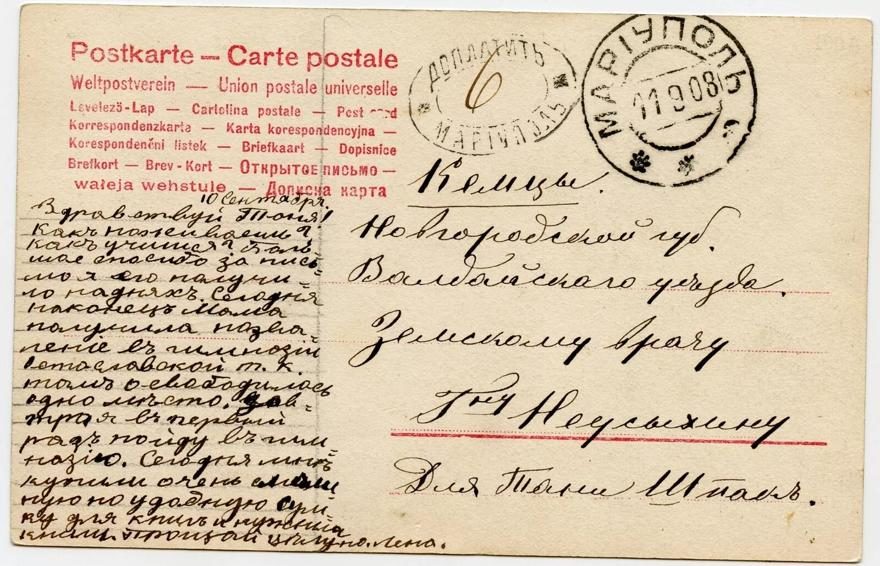 Postkarte — Carte postale
Weltpostverein — Union postale universelle
Levelező-Lap — Cartolina postale — Post card
Korrespondenzkarta — Karta korespondencyjna —
Korespondenčni listek — Briefkaart — Dopisnice
Brefkort — Brev-Kort — Открытое письмо —
wałeja wehstule — Дописна карта
ДОПЛАТИТЬ
6
МАРІУПОЛЬ
МАРІУПОЛЬ
11 9 08
10 Сентября.
Здравствуй Таня!
Какъ поживаешь?
Какъ учишся? Боль-
шое спасибо за пись-
мо я его получи-
ло надняхъ. Сегодня
наконецъ Мама
получила назна-
ченіе въ гимназіи
т. к.
тамъ освободилось
одно мѣсто. Зав-
тра я въ первый
разъ пойду въ гим
назію. Сегодня мнѣ
купили очень
ную но удобную сум
ку для книгъ и
Прощай цѣлую Лена.
Кемцы.
Новгородской губ.
Валдайскаго уѣзда.
Земскому врачу
Гну Неусыхину
Для Тани Шпакъ.